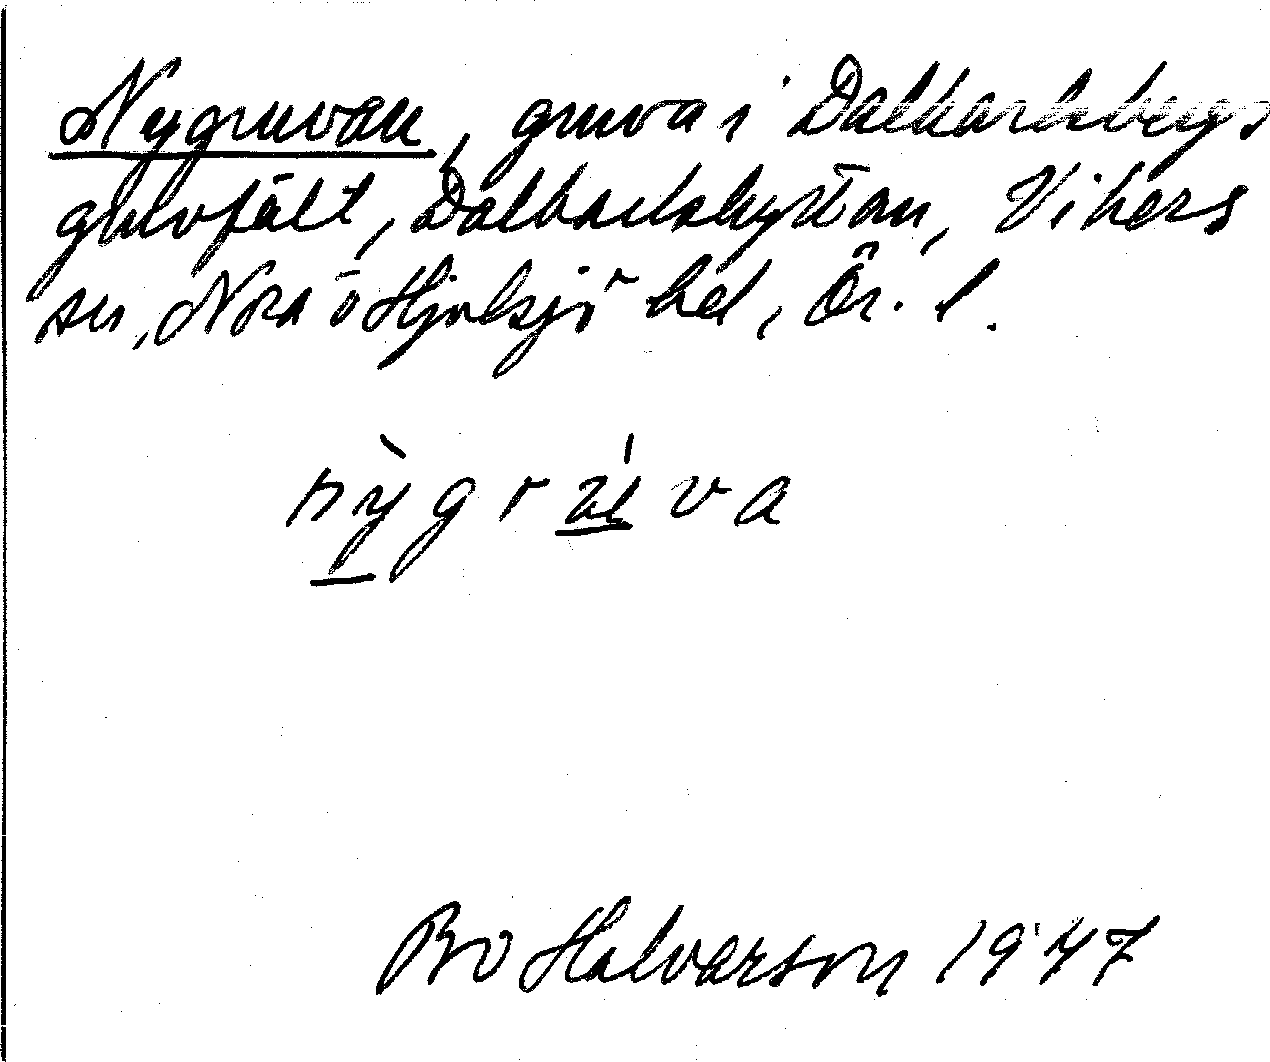 Nygruvan, gruva i Dalkarlsbergs
gruvfält, Dalkarlshyttan, Vikers
sn, Nora o Hjulsjö bd, Ör. l.
nỳgrúva
Bo Halvarson 1947